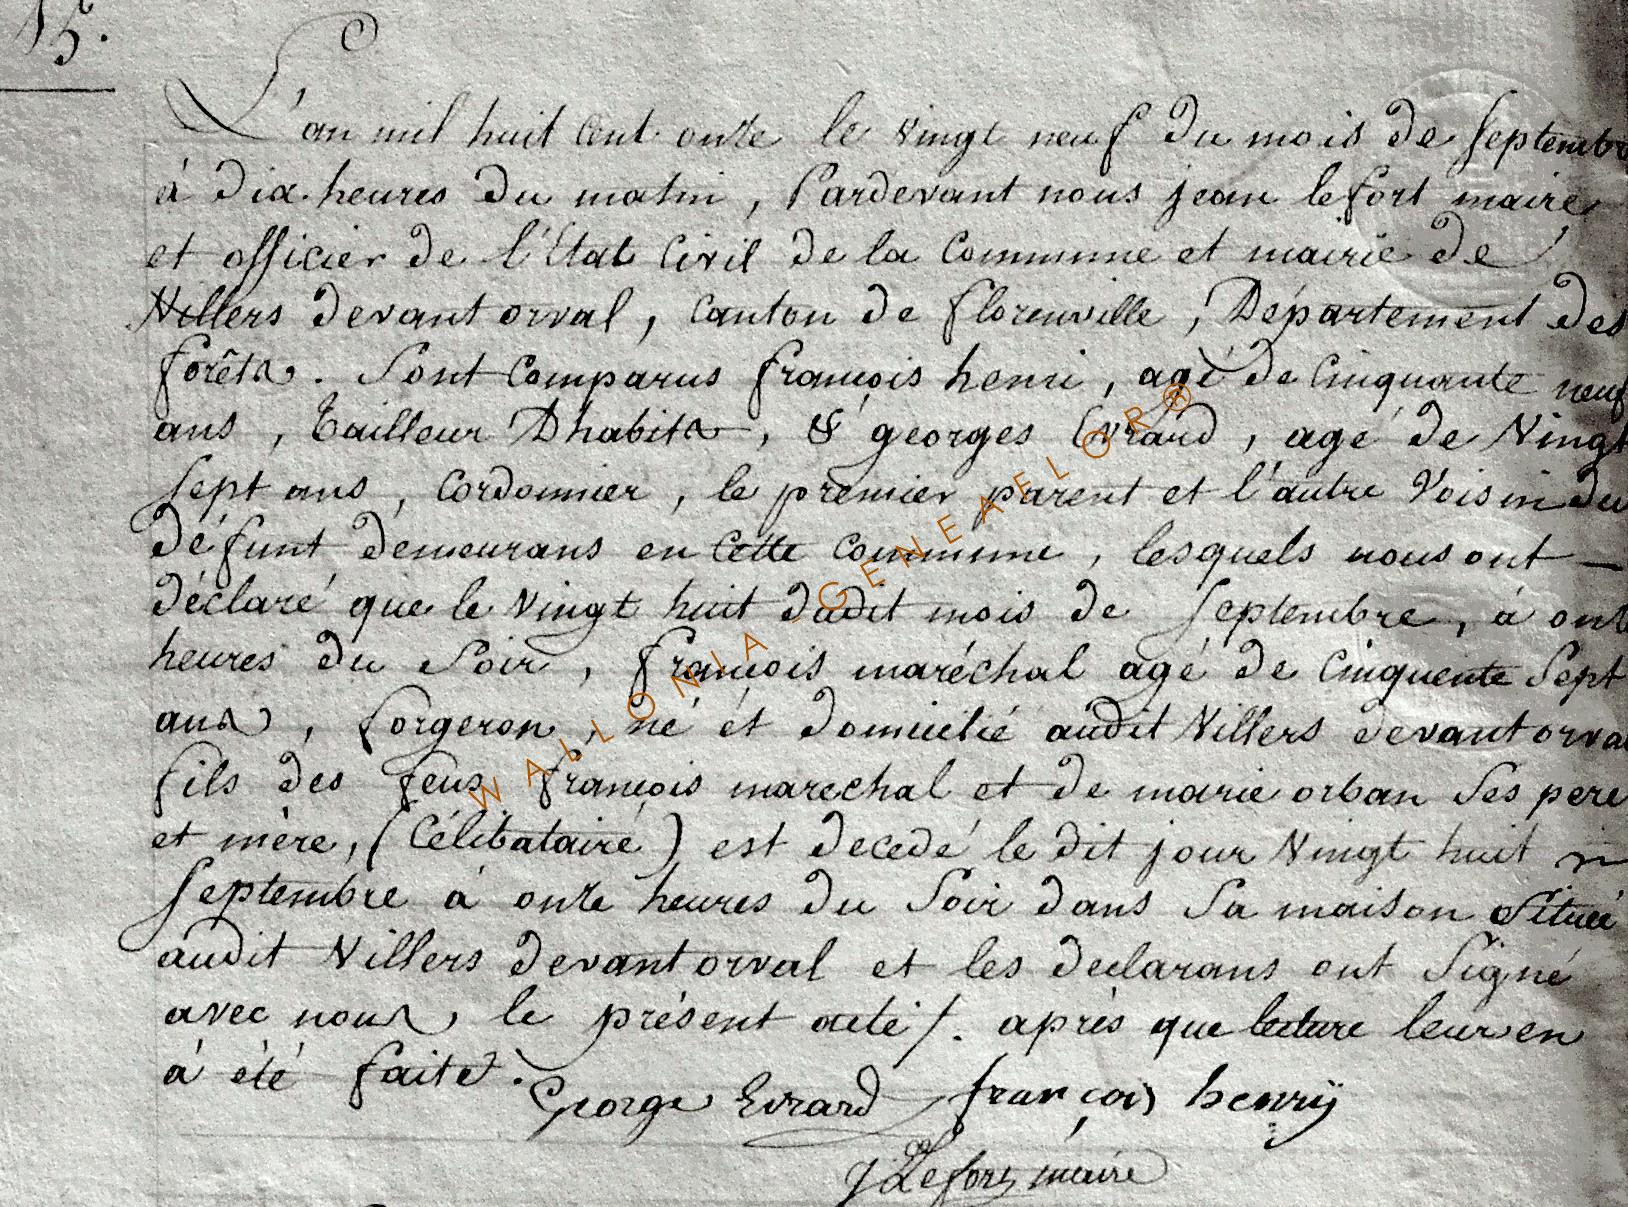 15.
L'an mil huit cent onze le vingt neuf du mois de septembre
à dix heures du matin, Pardevant nous jean lefort maire
et officier de l'Etat Civil de la Commune et mairie de
Villers devant orval, canton de florenville, Département des
forêts. Sont Comparus françois henri, agé de Cinquante neuf
ans, tailleur Dhabits, & georges Evrard, agé de Vingt
sept ans, Cordonnier, le premier parent et l'autre Voisin du
défunt demeurans en cette commune, lesquels nous ont —
déclaré que le vingt huit dudit mois de septembre, à onze
heures du Soir, françois maréchal agé de Cinquente Sept
ans, forgeron, né et domicilié audit Villers devant orval
fils des feus françois marechal et de marie orban Ses pere
et mère, (Célibatairé) est decedé le dit jour Vingt huit
septembre à onze heures du Soir dans Sa maison Situeé
audit Villers devant orval et les declarans ont Signé
avec nous, le présent acte /. après que lecture leur en
à été faite.
George Evrard françois henrÿ
J Lefort maire
WALLONIA - GENEAFLOR®